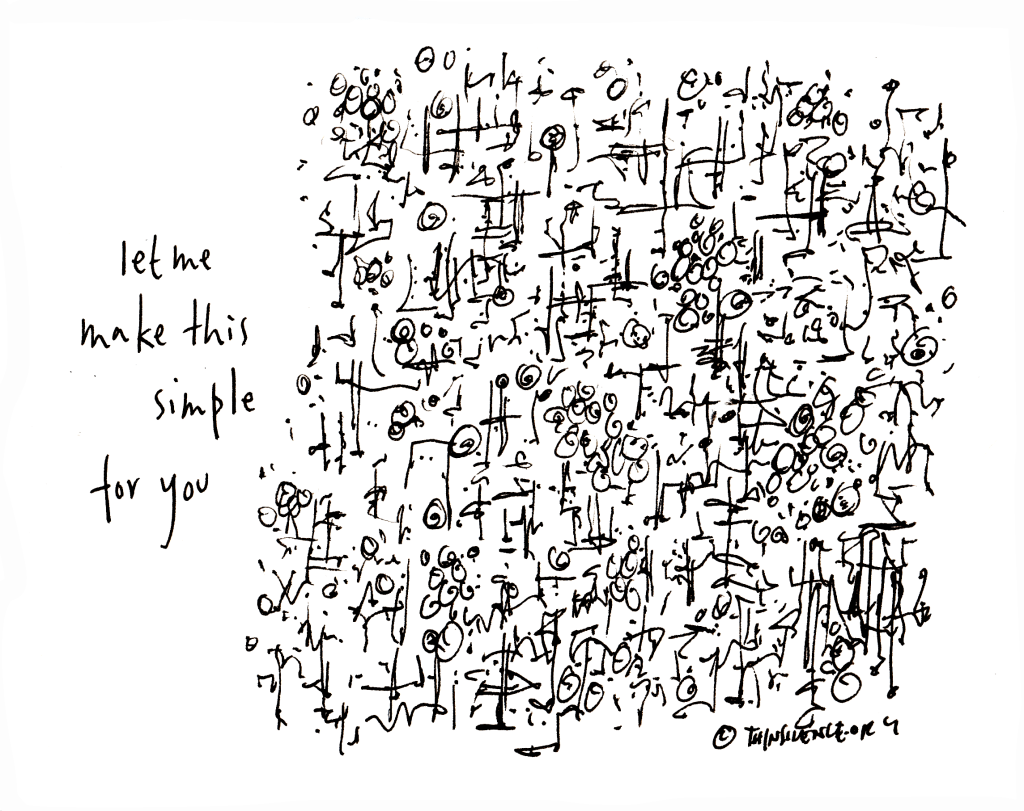 let me
make this
simple
for you
© THINSILENCE.ORG